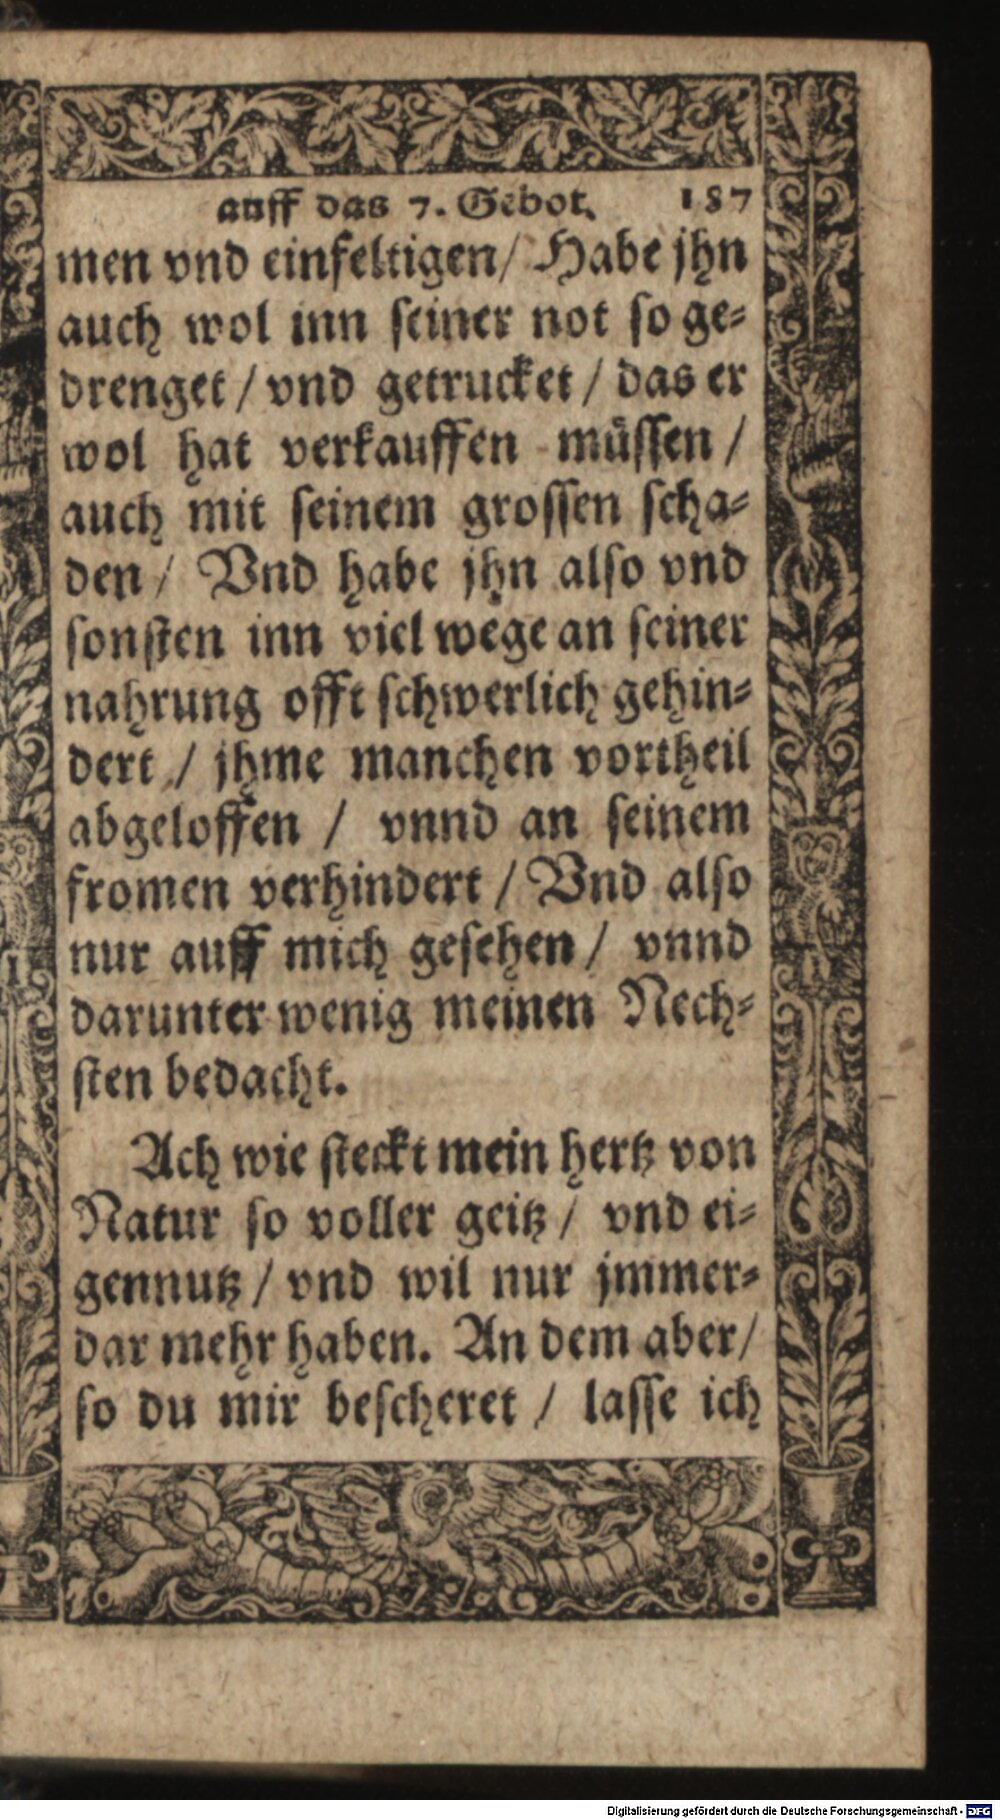 auff das 7. Gebot. 187
men vnd einfeltigen/ Habe jhn
auch wol inn seiner not so ge-
drenget / vnd getrucket / das er
wol hat verkauffen müssen /
auch mit seinem grossen scha-
den / Vnd habe jhn also vnd
sonsten inn viel wege an seiner
nahrung offt schwerlich gehin-
dert / jhme manchen vortheil
abgeloffen / vnnd an seinem
fromen verhindert / Vnd also
nur auff mich gesehen / vnnd
darunter wenig meinen Nech-
sten bedacht.
Ach wie steckt mein hertz von
Natur so voller geitz / vnd ei-
gennutz / vnd wil nur jmmer-
dar mehr haben. An dem aber/
so du mir bescheret / lasse ich
Digitalisierung gefördert durch die Deutsche Forschungsgemeinschaft - DFG